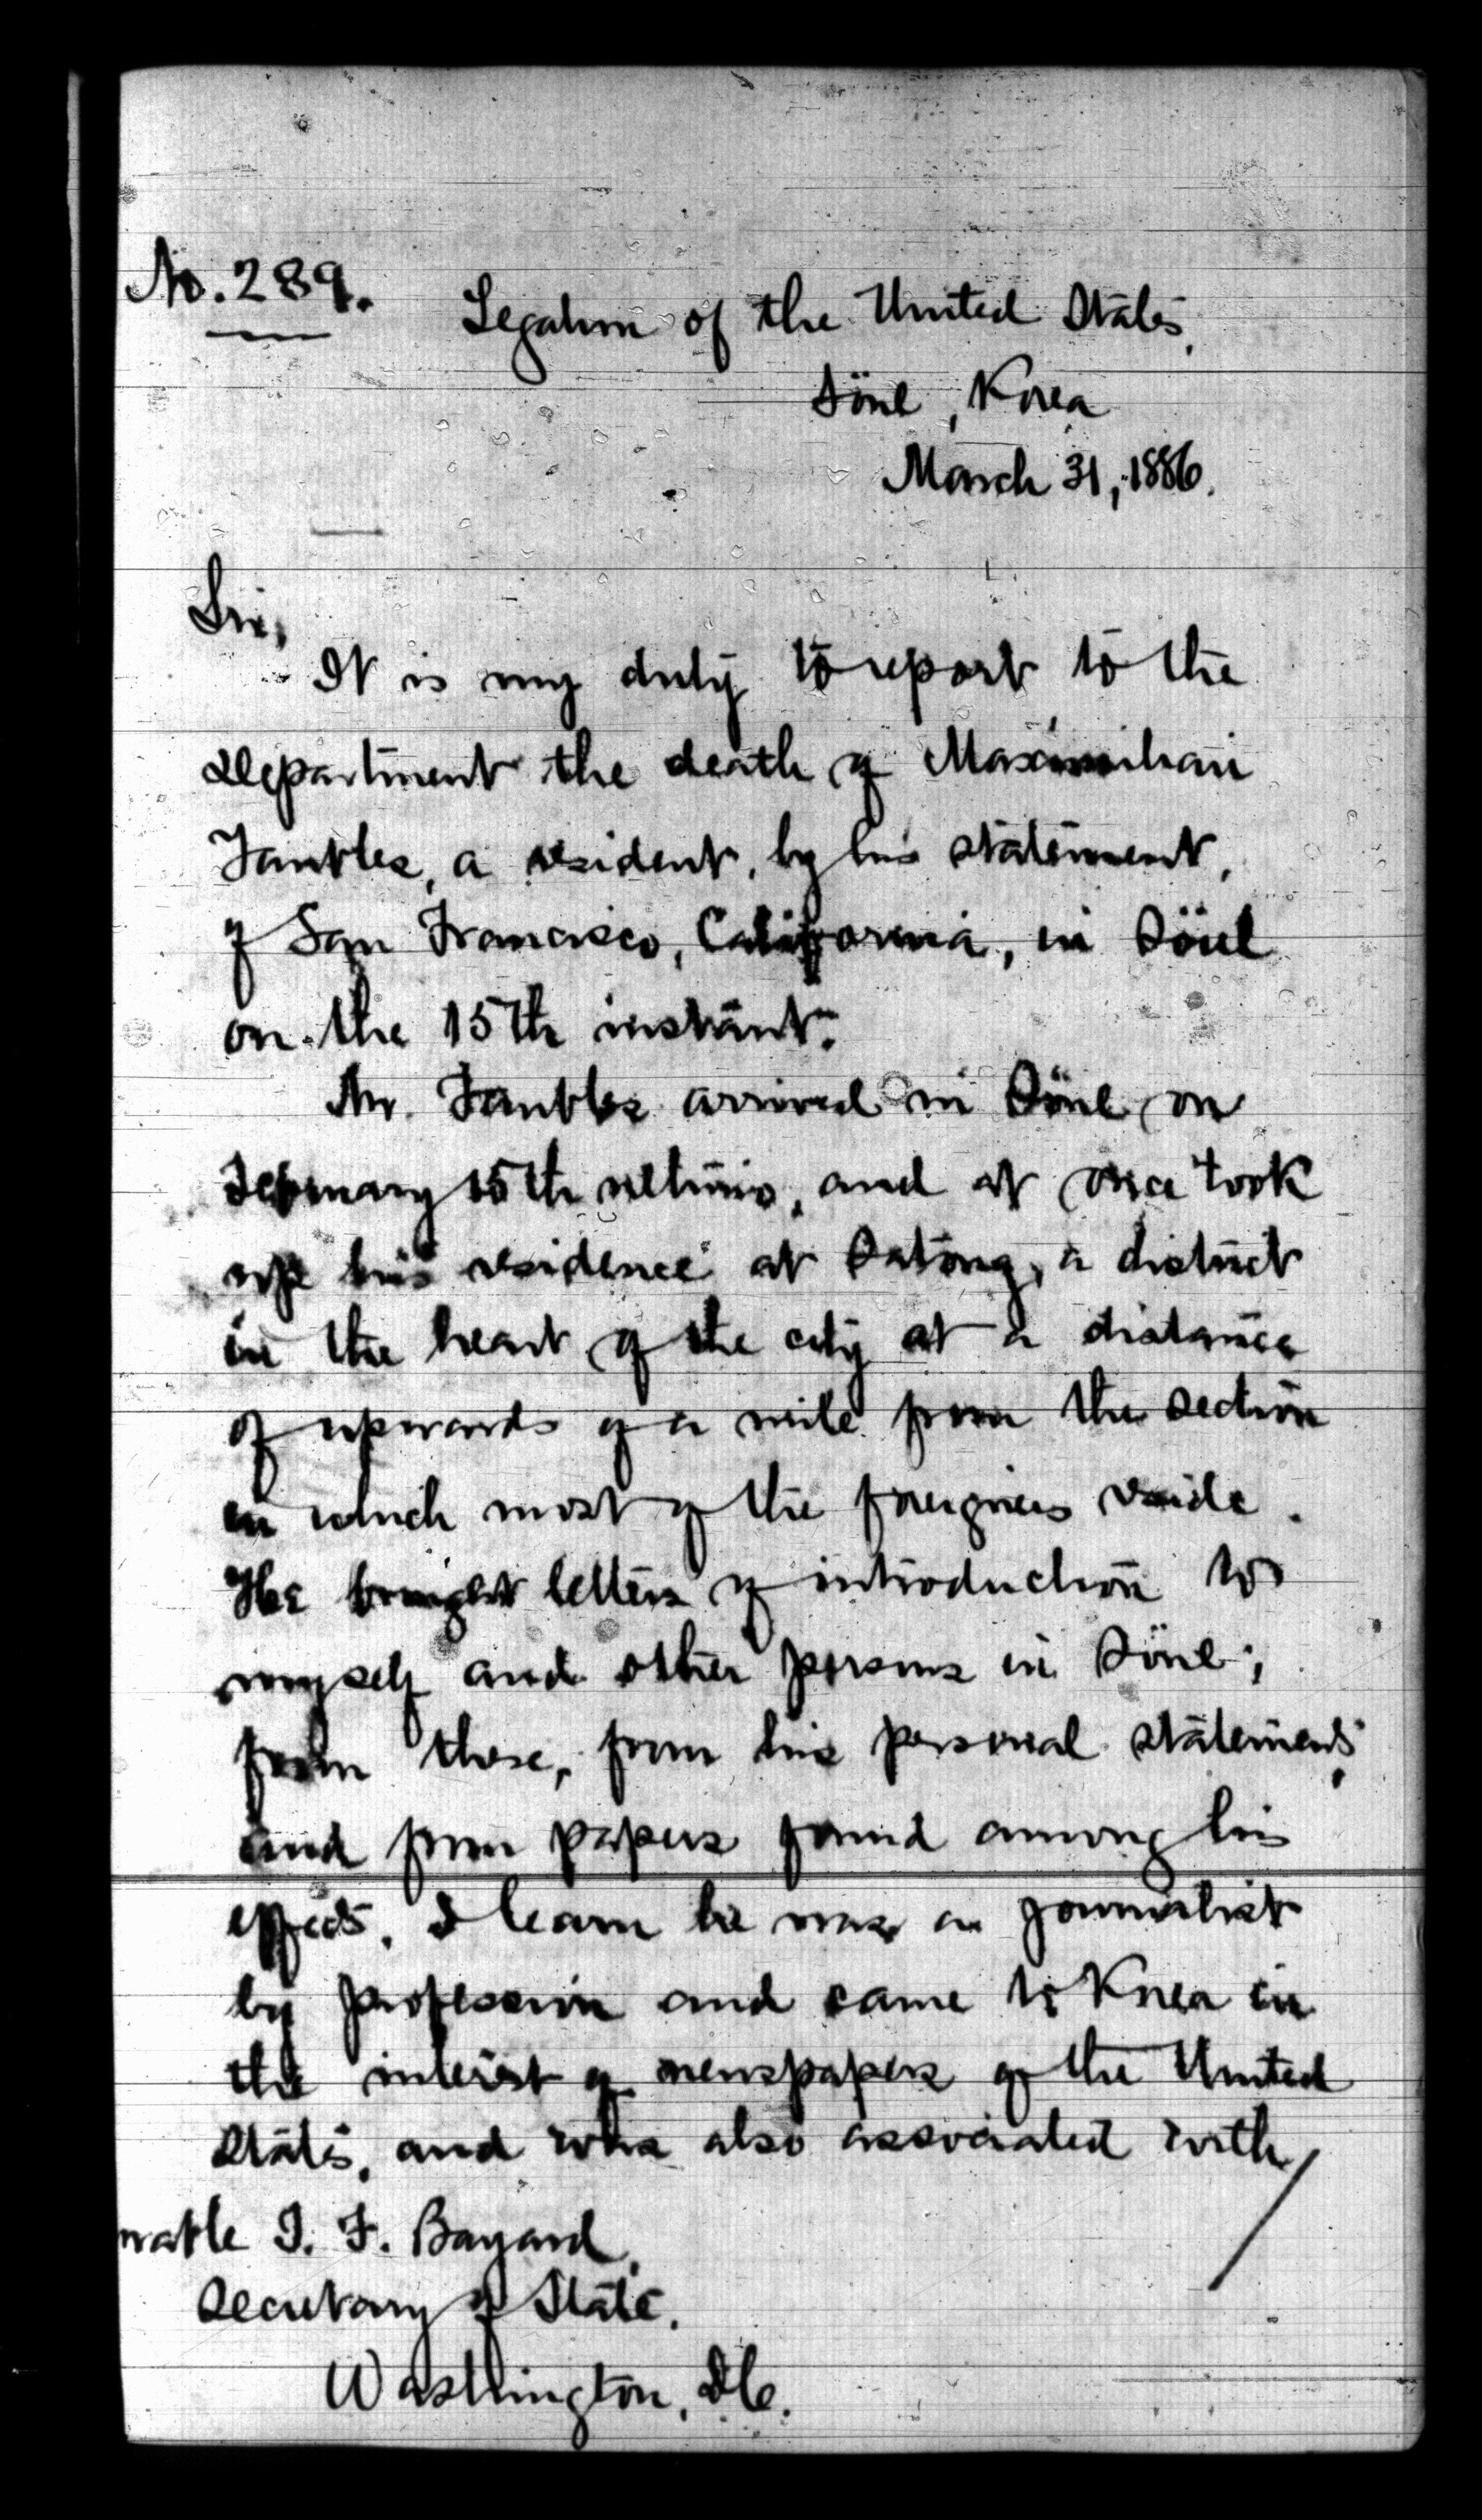 No. 289.
Legation of the United States,
Söul, Korea
March 31, 1886.
Sir,
It is my duty to report to the
Department the death of Maximilian
Taubles, a resident, by his statement,
of San Francisco, California, in Söul
on the 15th instant.
Mr. Taubles arrived in Söul on
February 15th ultimo, and at once took
up his residence at Satong, a district
in the heart of the city at a distance
of upwards of a mile from the section
in which most of the foreigners reside.
He brought letters of introduction to
myself and other persons in Söul;
from these, from his personal statements,
and from papers found among his
effects, I learn he was a journalist
by profession and came to Korea in
the interest of newspapers of the United
States, and was also associated with
orable T. F. Bayard,
Secretary of State,
Washington, D.C.